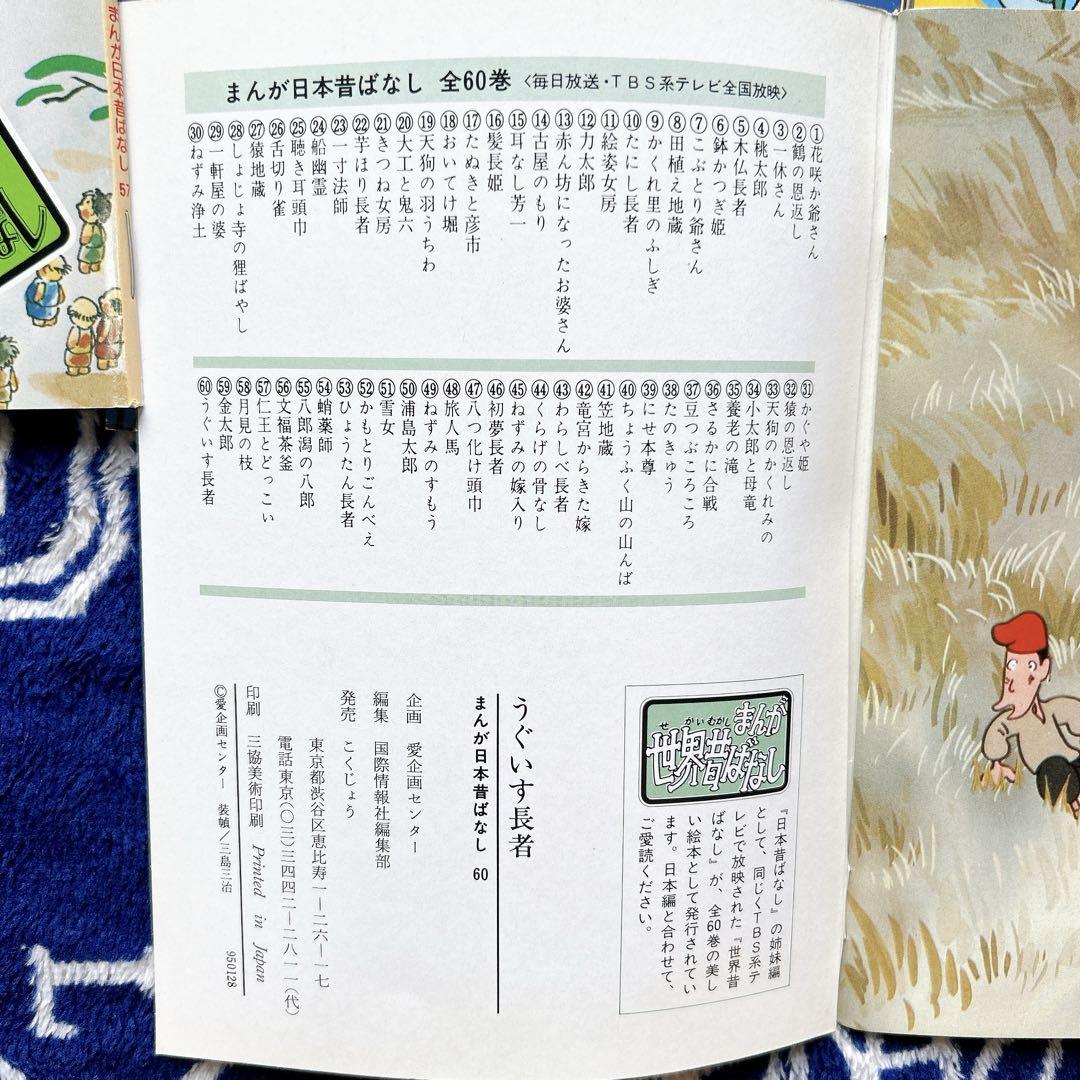 まんが日本昔ばなし 57
まんが日本昔ばなし 全60巻 〈毎日放送・TBS系テレビ全国放映〉
①花咲か爺さん
②鶴の恩返し
③一休さん
④桃太郎
⑤木仏長者
⑥鉢かつぎ姫
⑦こぶとり爺さん
⑧田植え地蔵
⑨かくれ里のふしぎ
⑩たにし長者
⑪絵姿女房
⑫力太郎
⑬赤ん坊になったお婆さん
⑭古屋のもり
⑮耳なし芳一
⑯髪長姫
⑰たぬきと彦市
⑱おいてけ堀
⑲天狗の羽うちわ
⑳大工と鬼六
㉑きつね女房
㉒芋ほり長者
㉓一寸法師
㉔船幽霊
㉕聴き耳頭巾
㉖舌切り雀
㉗猿地蔵
㉘しょじょ寺の狸ばやし
㉙一軒屋の婆
㉚ねずみ浄土
㉛かぐや姫
㉜猿の恩返し
㉝天狗のかくれみの
㉞小太郎と母竜
㉟養老の滝
㊱さるかに合戦
㊲豆つぶころころ
㊳たのきゅう
㊴にせ本尊
㊵ちょうふく山の山んば
㊶笠地蔵
㊷竜宮からきた嫁
㊸わらしべ長者
㊹くらげの骨なし
㊺ねずみの嫁入り
㊻初夢長者
㊼八つ化け頭巾
㊽旅人馬
㊾ねずみのすもう
㊿浦島太郎
51雪女
52かもとりごんべえ
53ひょうたん長者
54蛸薬師
55八郎潟の八郎
56文福茶釜
57仁王とどっこい
58月見の枝
59金太郎
60うぐいす長者
まんが
せかいむかし
世界昔ばなし
『日本昔ばなし』の姉妹編
として、同じくTBS系テ
レビで放映された『世界昔
ばなし』が、全60巻の美し
い絵本として発行されてい
ます。日本編と合わせて、
ご愛読ください。
うぐいす長者
まんが日本昔ばなし 60
企画 愛企画センター
編集 国際情報社編集部
発売 こくじょう
東京都渋谷区恵比寿一―二六―一七
電話東京(〇三)三四四二―二八一一(代)
印刷 三協美術印刷 Printed in Japan
©愛企画センター 装幀/三島三治 950128